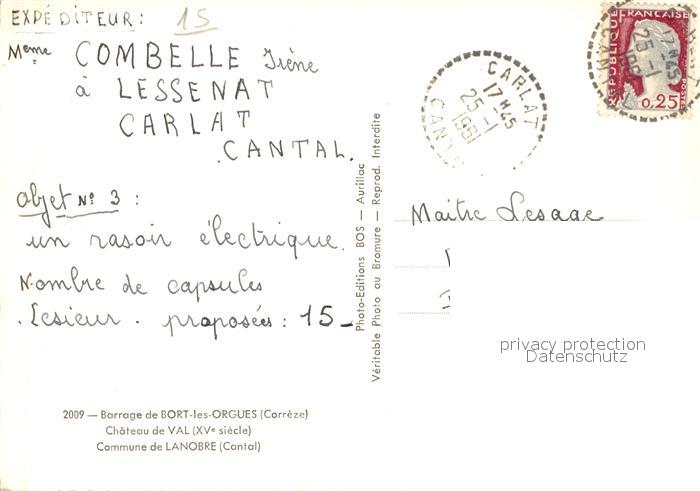 EXPÉDITEUR : 15
Meme COMBELLE Irène
à LESSENAT
CARLAT
CANTAL.
Objet N° 3 :
un rasoir électrique.
Nombre de capsules
.Lesieur. proposées : 15_
2009 — Barrage de BORT-les-ORGUES (Corrèze)
Château de VAL (XVe siècle)
Commune de LANOBRE (Cantal)
Photo-Editions BOS — Aurillac
Véritable Photo au Bromure — Reprod. Interdite
CARLAT
17H45
25-1
1961
CANTAL
REPUBLIQUE FRANÇAISE
0,25
17H45
25-1
1961
Maître Lesage
privacy protection
Datenschutz